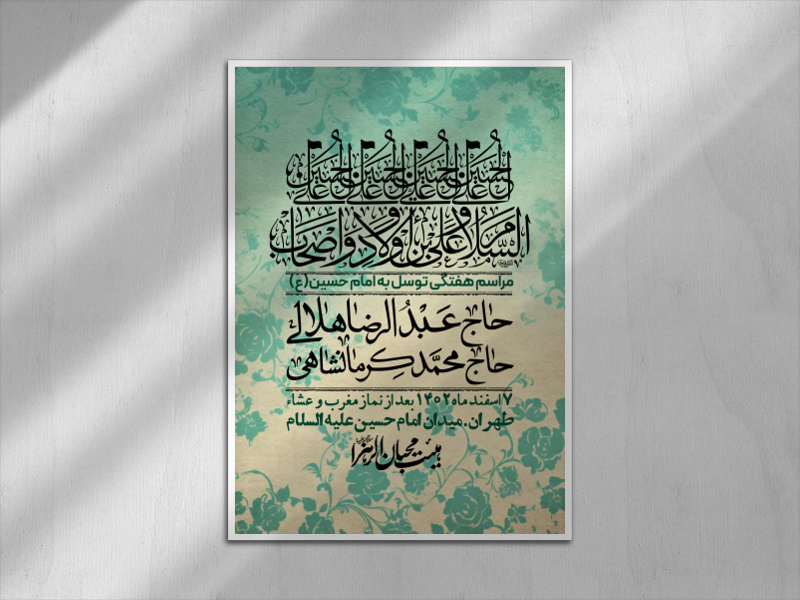 الحسین الحسین الحسین الحسین
السلام و علی علی بن و اولاد و اصحاب
مراسم هفتگی توسل به امام حسین(ع)
حاج عَبْدُالرضا هلالی
حاج محمّد کِرمانشاهی
۷ اسفند ماه ۱۴۰۲ بعد از نماز مغرب و عشاء
طهران.میدان امام حسین علیه السلام
هیئت محبان الزهرا